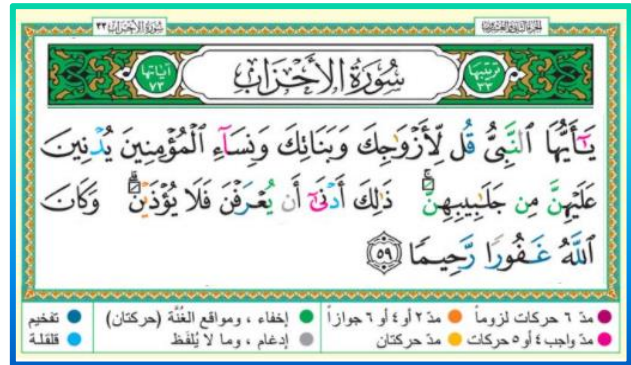 سُورَةُ الأَحْزَاب ٣٣
الجُزءُ الثَّانِي وَالعِشْرُون
ترتيبها ٣٣
سُورَةُ الأَحْزَاب
آياتها ٧٣
يَـٰٓأَيُّهَا ٱلنَّبِىُّ قُل لِّأَزْوَٰجِكَ وَبَنَاتِكَ وَنِسَآءِ ٱلْمُؤْمِنِينَ يُدْنِينَ
عَلَيْهِنَّ مِن جَلَـٰبِيبِهِنَّ ۚ ذَٰلِكَ أَدْنَىٰٓ أَن يُعْرَفْنَ فَلَا يُؤْذَيْنَ ۗ وَكَانَ
ٱللَّهُ غَفُورًا رَّحِيمًا ٥٩
مدّ ٦ حركات لزوماً مدّ ٢ أو ٤ أو ٦ جوازاً إخفاء ، ومواقع الغُنَّة (حركتان) تفخيم
مدّ واجب ٤ أو ٥ حركات مدّ حركتان إدغام ، وما لا يُلفَظ قلقلة